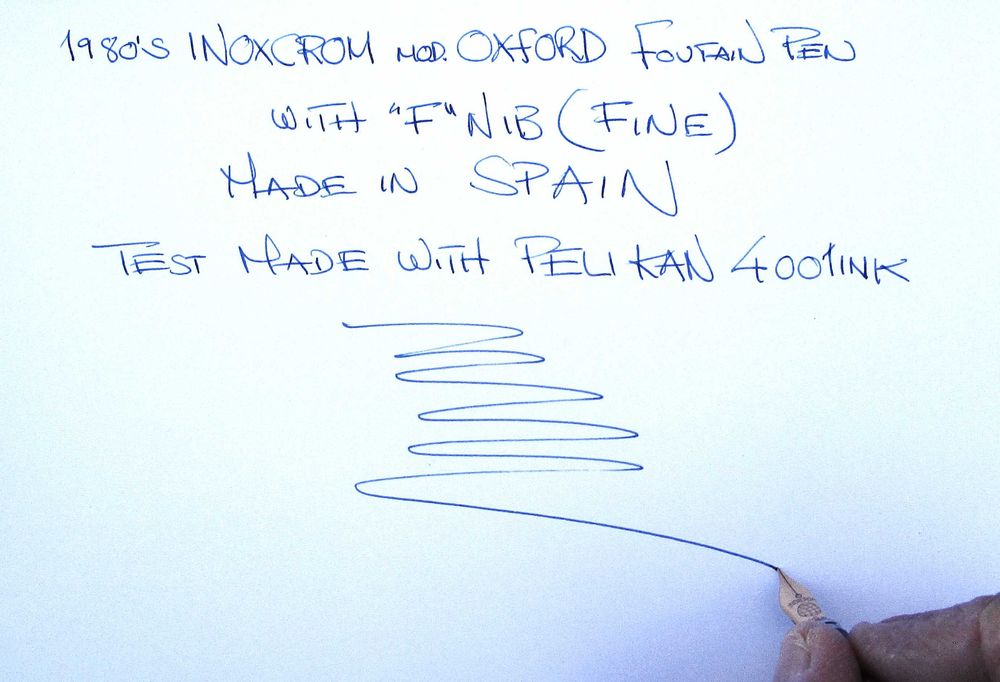 1980'S INOXCROM MOD. OXFORD FOUTAIN PEN
WITH "F" NIB (FINE)
MADE IN SPAIN
TEST MADE WITH PELIKAN 4001 INK